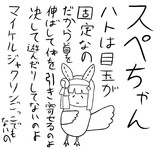 スペちゃん
ハトは目玉が
固定なの
だから首を
伸ばして体を引き寄せるのよ
決して遊んだりしてないのよ
マイケルジャクソンごっことも
ないの